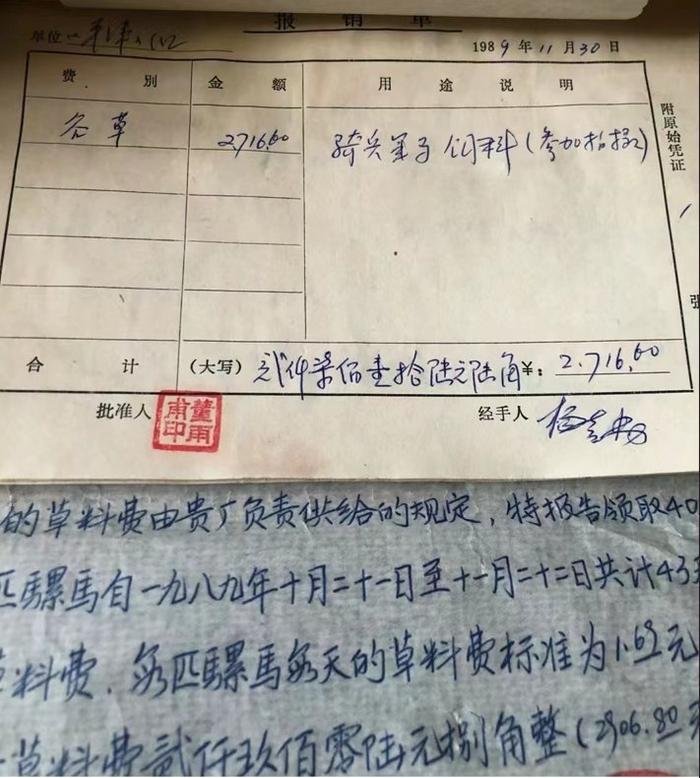 报 销 单
单位
1989年11月30日
费 别 金 额 用 途 说 明
谷草 2716.60 骑兵军子饲料(参加拍摄)
附原始凭证
张
合 计 (大写) 贰仟柒佰壹拾陆元陆角 ¥: 2.716.60
批准人 董雨甫印 经手人
的草料费由贵厂负责供给的规定,特报告领取40
匹骡马自一九八九年十月二十一日至十一月二十二日共计43天
草料费.每匹骡马每天的草料费标准为1.69元
草料费贰仟玖佰零陆元捌角整(2906.80元